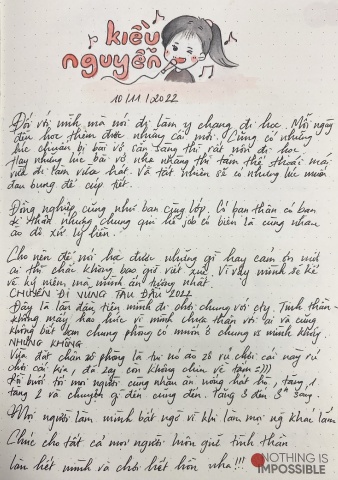 kiều
nguyễn
10/11/2022
Đối với mình mà nói đi làm y chang đi học. Mỗi ngày
đều học thêm được những cái mới. Cũng có những
lúc chuẩn bị bài vở sẵn sàng thì rất nôn đi học
Hay những lúc bài vở nhẹ nhàng thì tâm thế thoải mái
vừa đi làm vừa hát. Và tất nhiên sẽ có những lúc muốn
đau bụng để cúp tiết.
Đồng nghiệp cũng như bạn cùng lớp. Có bạn thân có bạn
k thân nhưng chung qui hễ job có biến là cùng nhau
ào đô xử lý liền.
Cho nên để nói học được những gì hay cảm ơn
ai thì chắc không bao giờ viết xuể. Vì vậy mình sẽ kể
về kỷ niệm mà mình ấn tượng nhất.
CHUYẾN ĐI VŨNG TÀU ĐẦU 2022
Đây là lần đầu tiên mình đi chơi chung với cty. Tinh thần
không mấy háo hức vì mình chưa thân với ai và cũng
không biết đám chung phòng có muốn ở chung vs mình không.
NHƯNG KHÔNG
Vừa đặt chân zô phòng là tụi nó ào zô rủ chơi cái này rủ
chơi cái kia, đã zậy còn không chịu về tắm =)))
Rồi buổi tối mọi người cùng nhau ăn uống hát hò, tầng 1
tầng 2 và chuyện gì đến cũng đến. Tầng 3 đến 3h sáng.
Mọi người làm mình bất ngờ vì khi làm mọi ng khác lắm
Chúc cho tất cả mọi người luôn giữ tinh thần
làm hết mình và chơi hết hồn nha!!!
NOTHING IS
IMPOSSIBLE